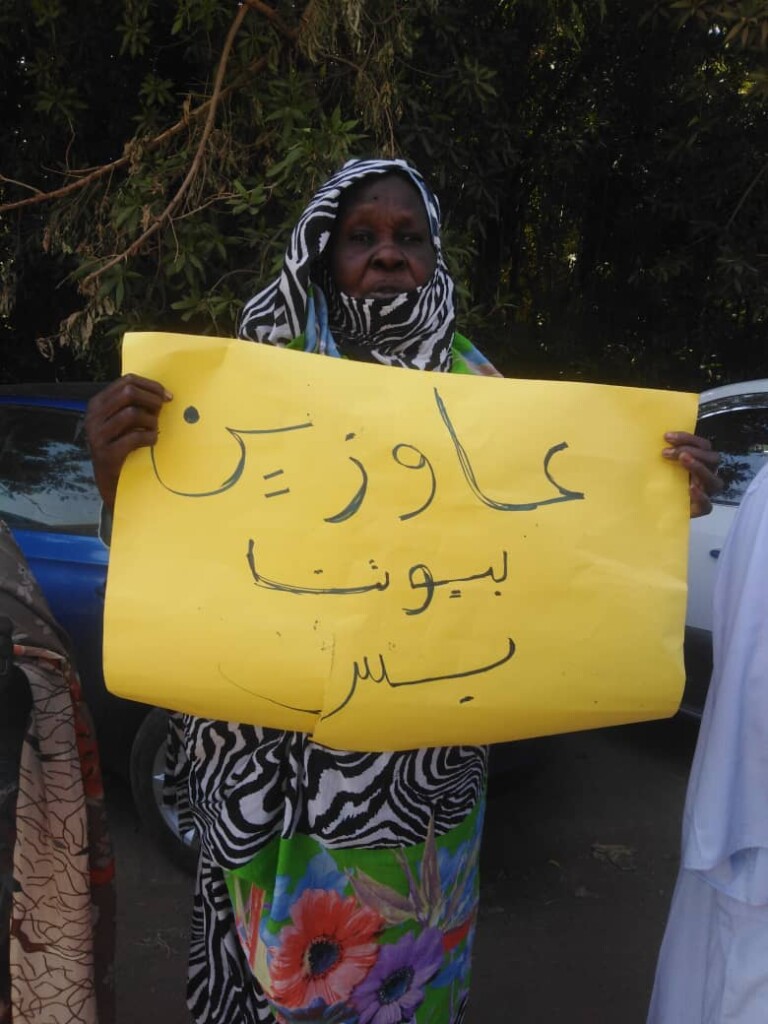 عاوزين
بيوتنا
بس